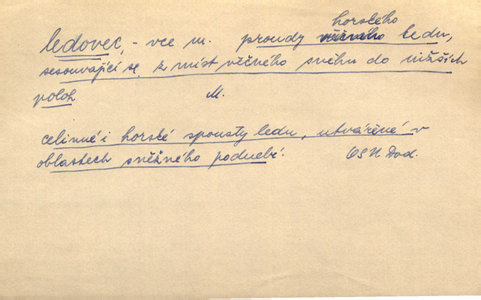 horského
ledovec, -vce m. proudy věčného ledu,
sesouvající se z míst věčného sněhu do nižších
poloh M.
celinné i horské spousty ledu, utvářené v
oblastech sněžného podnebí. OSN Dod.